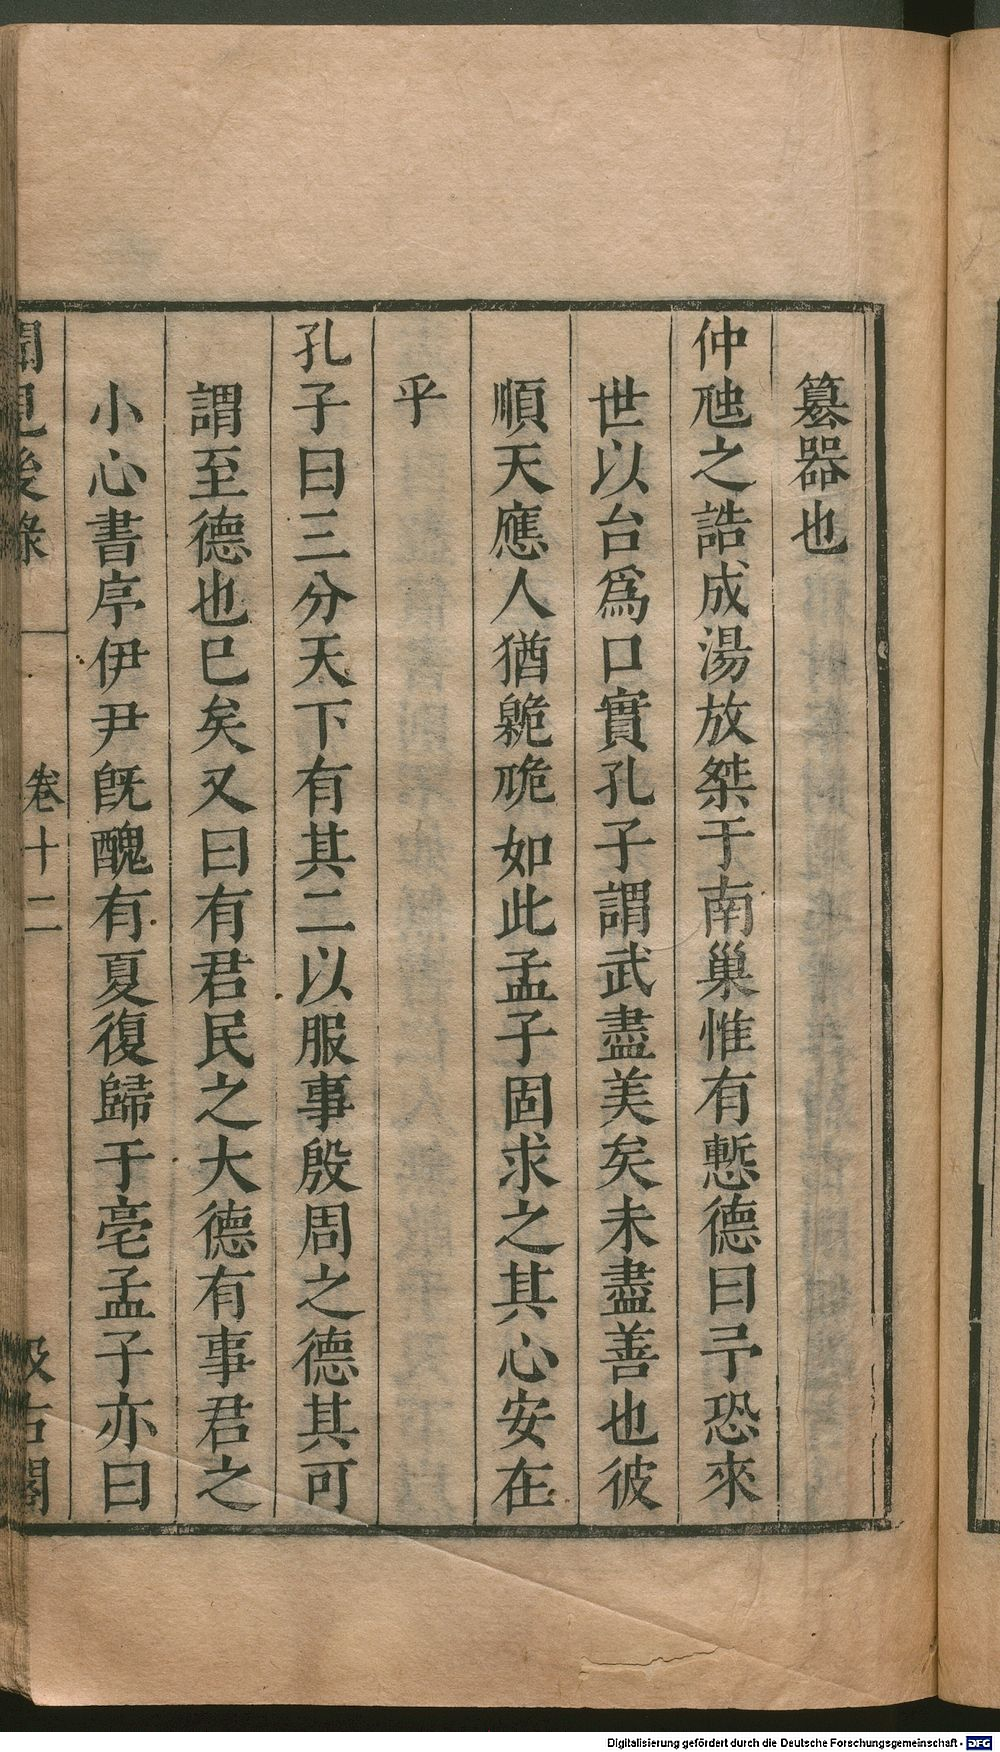 篡器也
仲虺之誥成湯放桀于南巢惟有慙德曰予恐來
世以台爲口實孔子謂武盡美矣未盡善也彼
順天應人猶臲卼如此孟子固求之其心安在
乎
孔子曰三分天下有其二以服事殷周之德其可
謂至德也巳矣又曰有君民之大德有事君之
小心書序伊尹旣醜有夏復歸于亳孟子亦曰
聞見後錄 卷十二 汲古閣
Digitalisierung gefördert durch die Deutsche Forschungsgemeinschaft - DFG